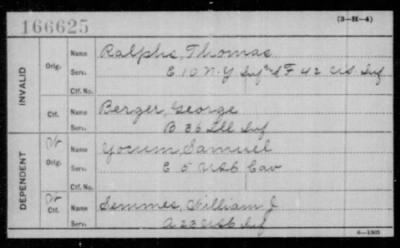 166625
(3-H-4)
INVALID
Orig.
Name Ralphs, Thomas
Serv. E. 10 N.Y. Inf & F 42 U.S. Inf
Ctf. No.
Ctf.
Name Berger, George
Serv. B 36 Ill Inf
DEPENDENT
Orig.
Name Yocum, Samuel
Serv. E 5 USC Cav
Ctf. No.
Ctf.
Name Semmes, William J
Serv. A 23 USC Inf
6-1365